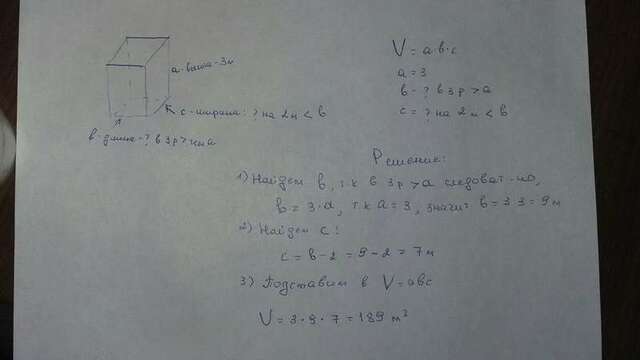 a-высота-3м
c-ширина: ? на 2м < b
b-длина-? в 3р > чем a
V = a·b·c
a = 3
b - ? в 3р > a
c = ? на 2м < b
Решение:
1) Найдем b, т.к в 3р > a следоват-но,
b = 3·a, т.к a = 3, значит b = 3·3 = 9 м
2) Найдем c:
c = b - 2 = 9 - 2 = 7м
3) Подставим в V = abc
V = 3 · 9 · 7 = 189 м³